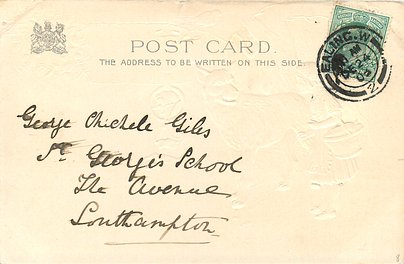 POST CARD.
THE ADDRESS TO BE WRITTEN ON THIS SIDE.
EALING. W
2
George Chichele Giles
St George's School
The Avenue
Southampton
8